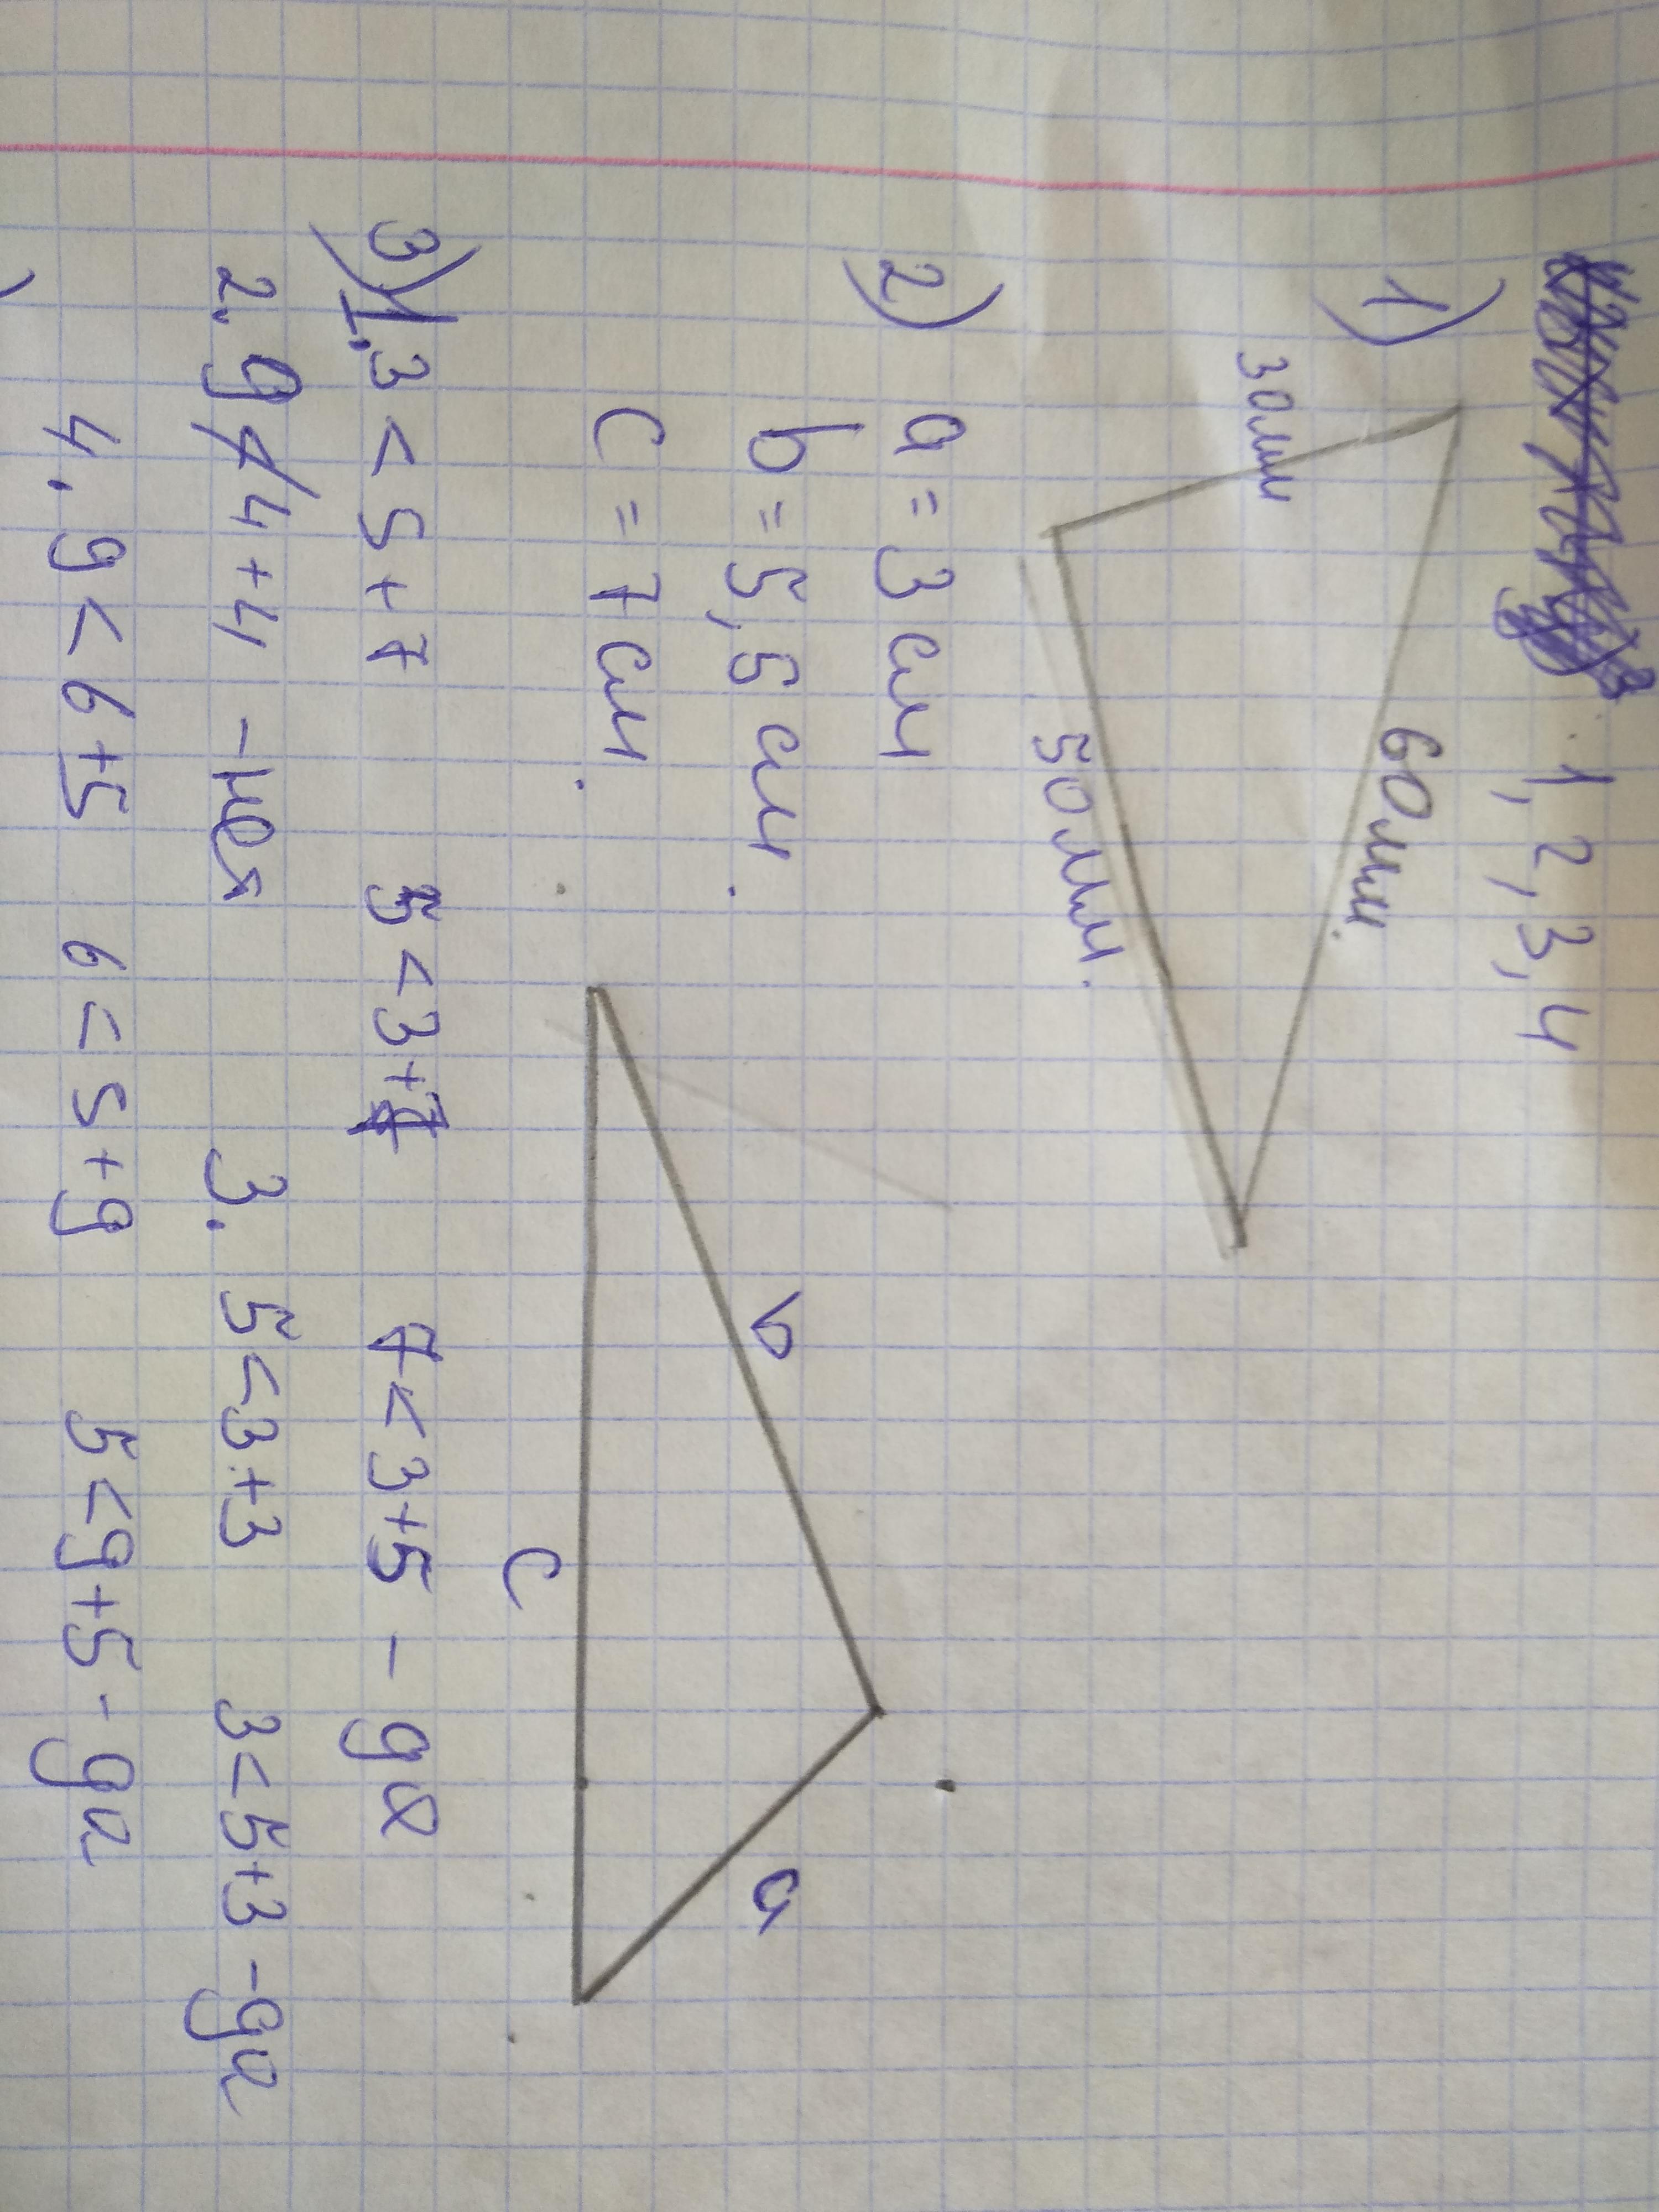 1, 2, 3, 4
1)
60мм.
30мм
50мм.
2) a = 3 см
b = 5,5 см.
c = 7 см.
b
a
c
3) 1. 3 < 5 + 7 5 < 3 + 7 7 < 3 + 5 – да
2. 9 ≮ 4 + 4 – нет 3. 5 < 3 + 3 3 < 5 + 3 - да
4. 9 < 6 + 5 6 < 5 + 9 5 < 9 + 5 - да